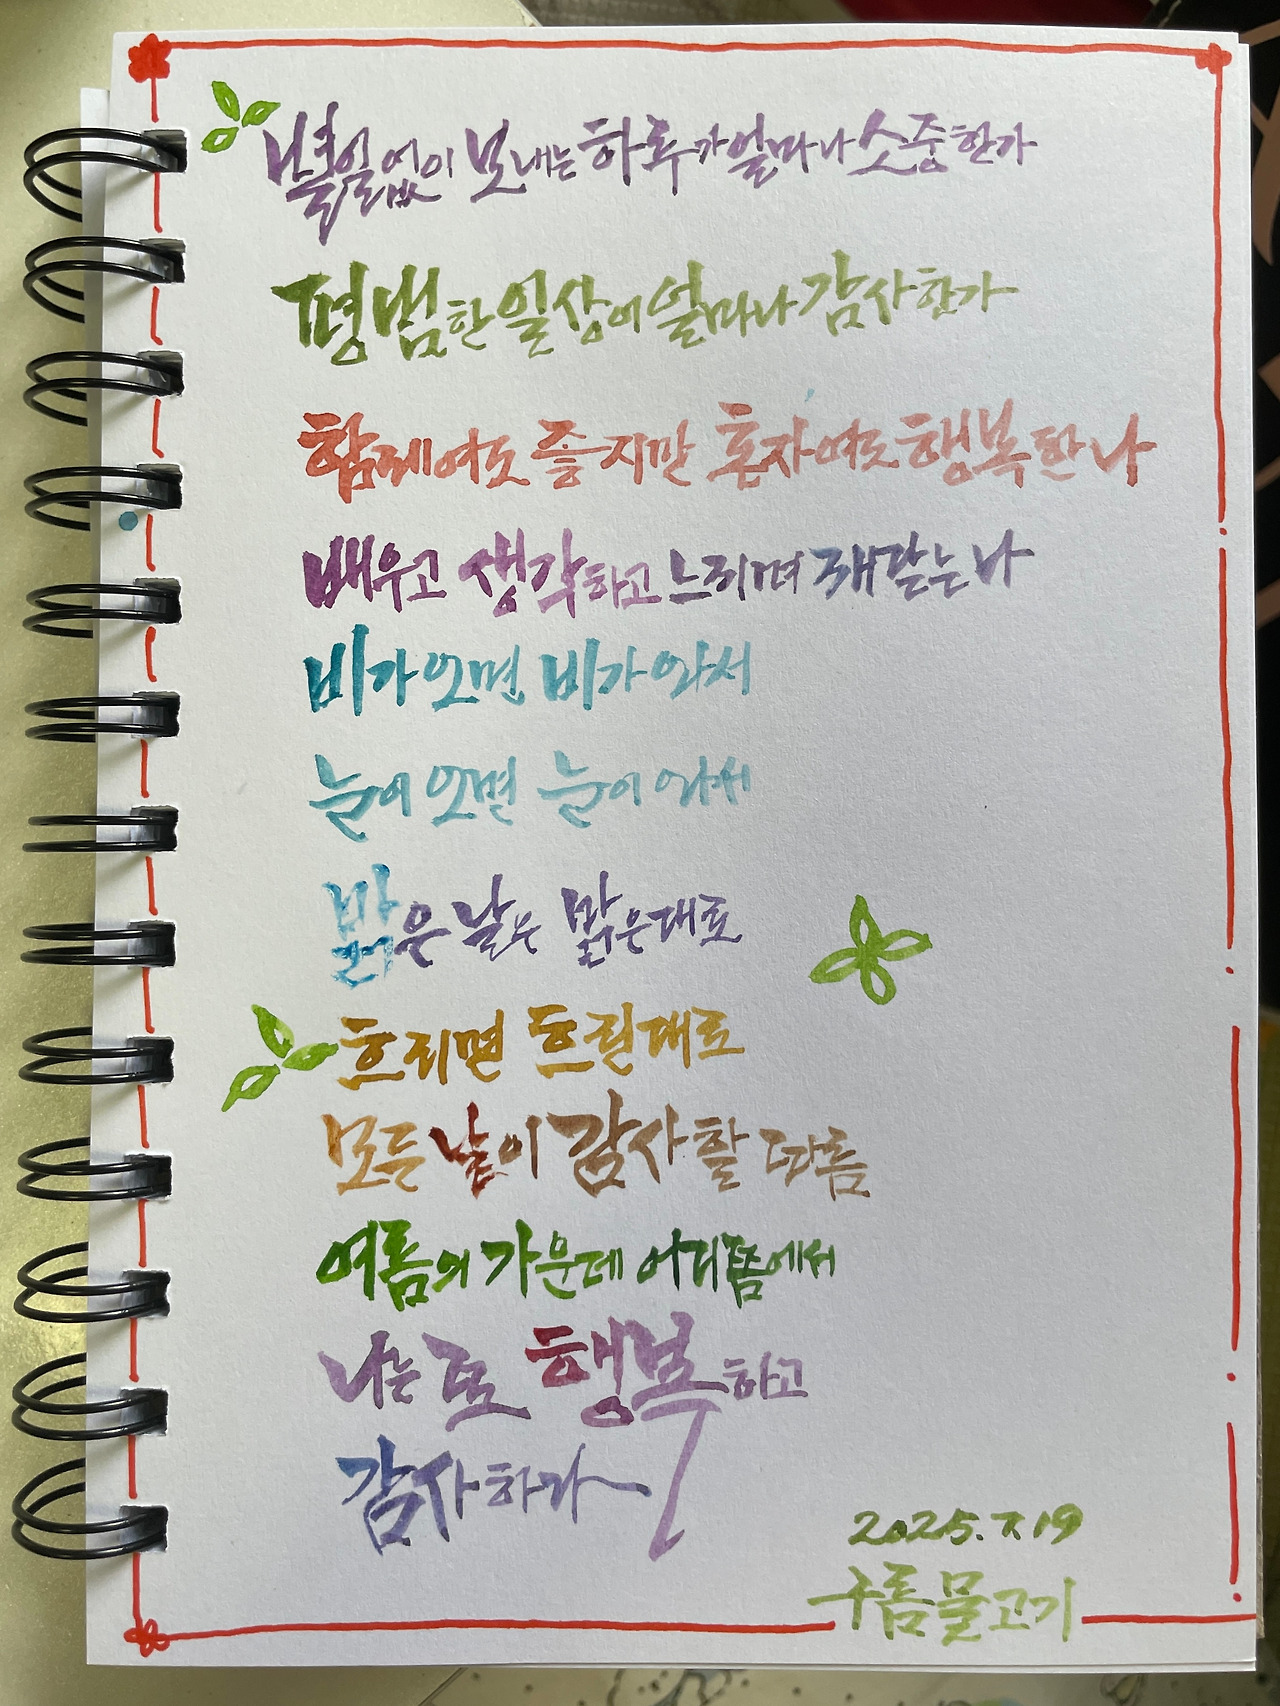 별일없이 보내는 하루가 얼마나 소중한가
평범한 일상이 얼마나 감사한가
함께여도 좋지만 혼자여도 행복한 나
배우고 생각하고 느끼며 깨닫는 나
비가 오면 비가 와서
눈이 오면 눈이 와서
밝은 날은 밝은대로
흐리면 흐린대로
모든 날이 감사할 따름
여름의 가운데 어디쯤에서
나는 또 행복하고
감사하다
2025.7.19
구름물고기